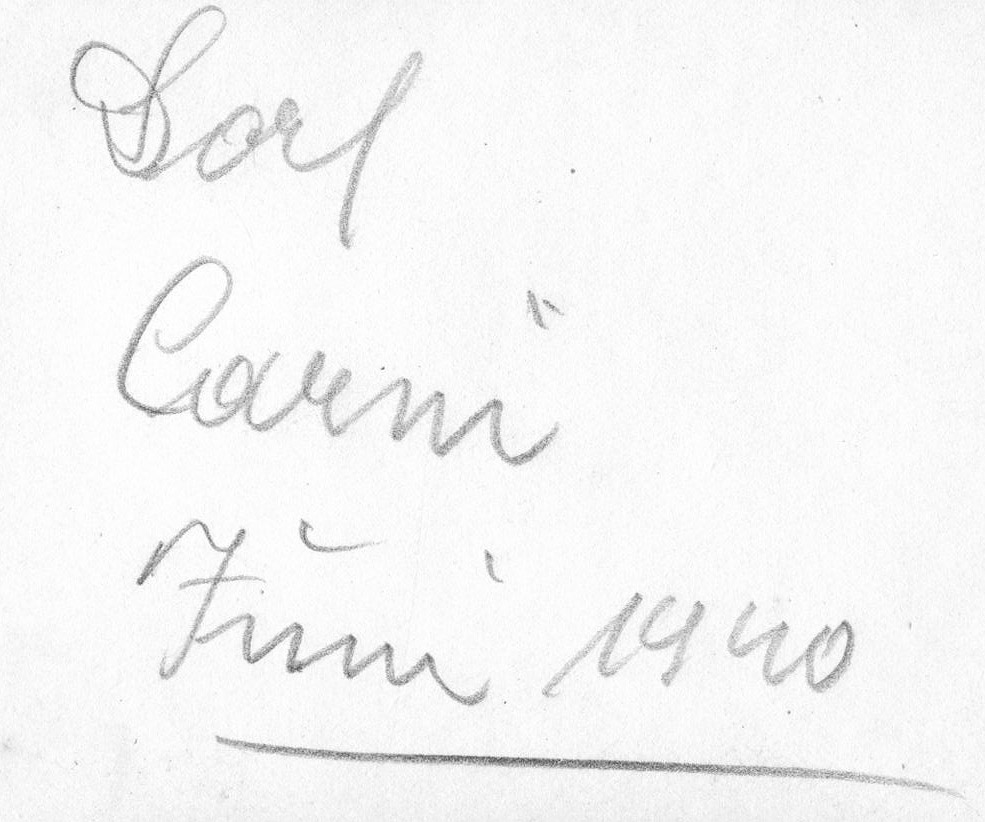 Dorf
Carni
Juni 1940